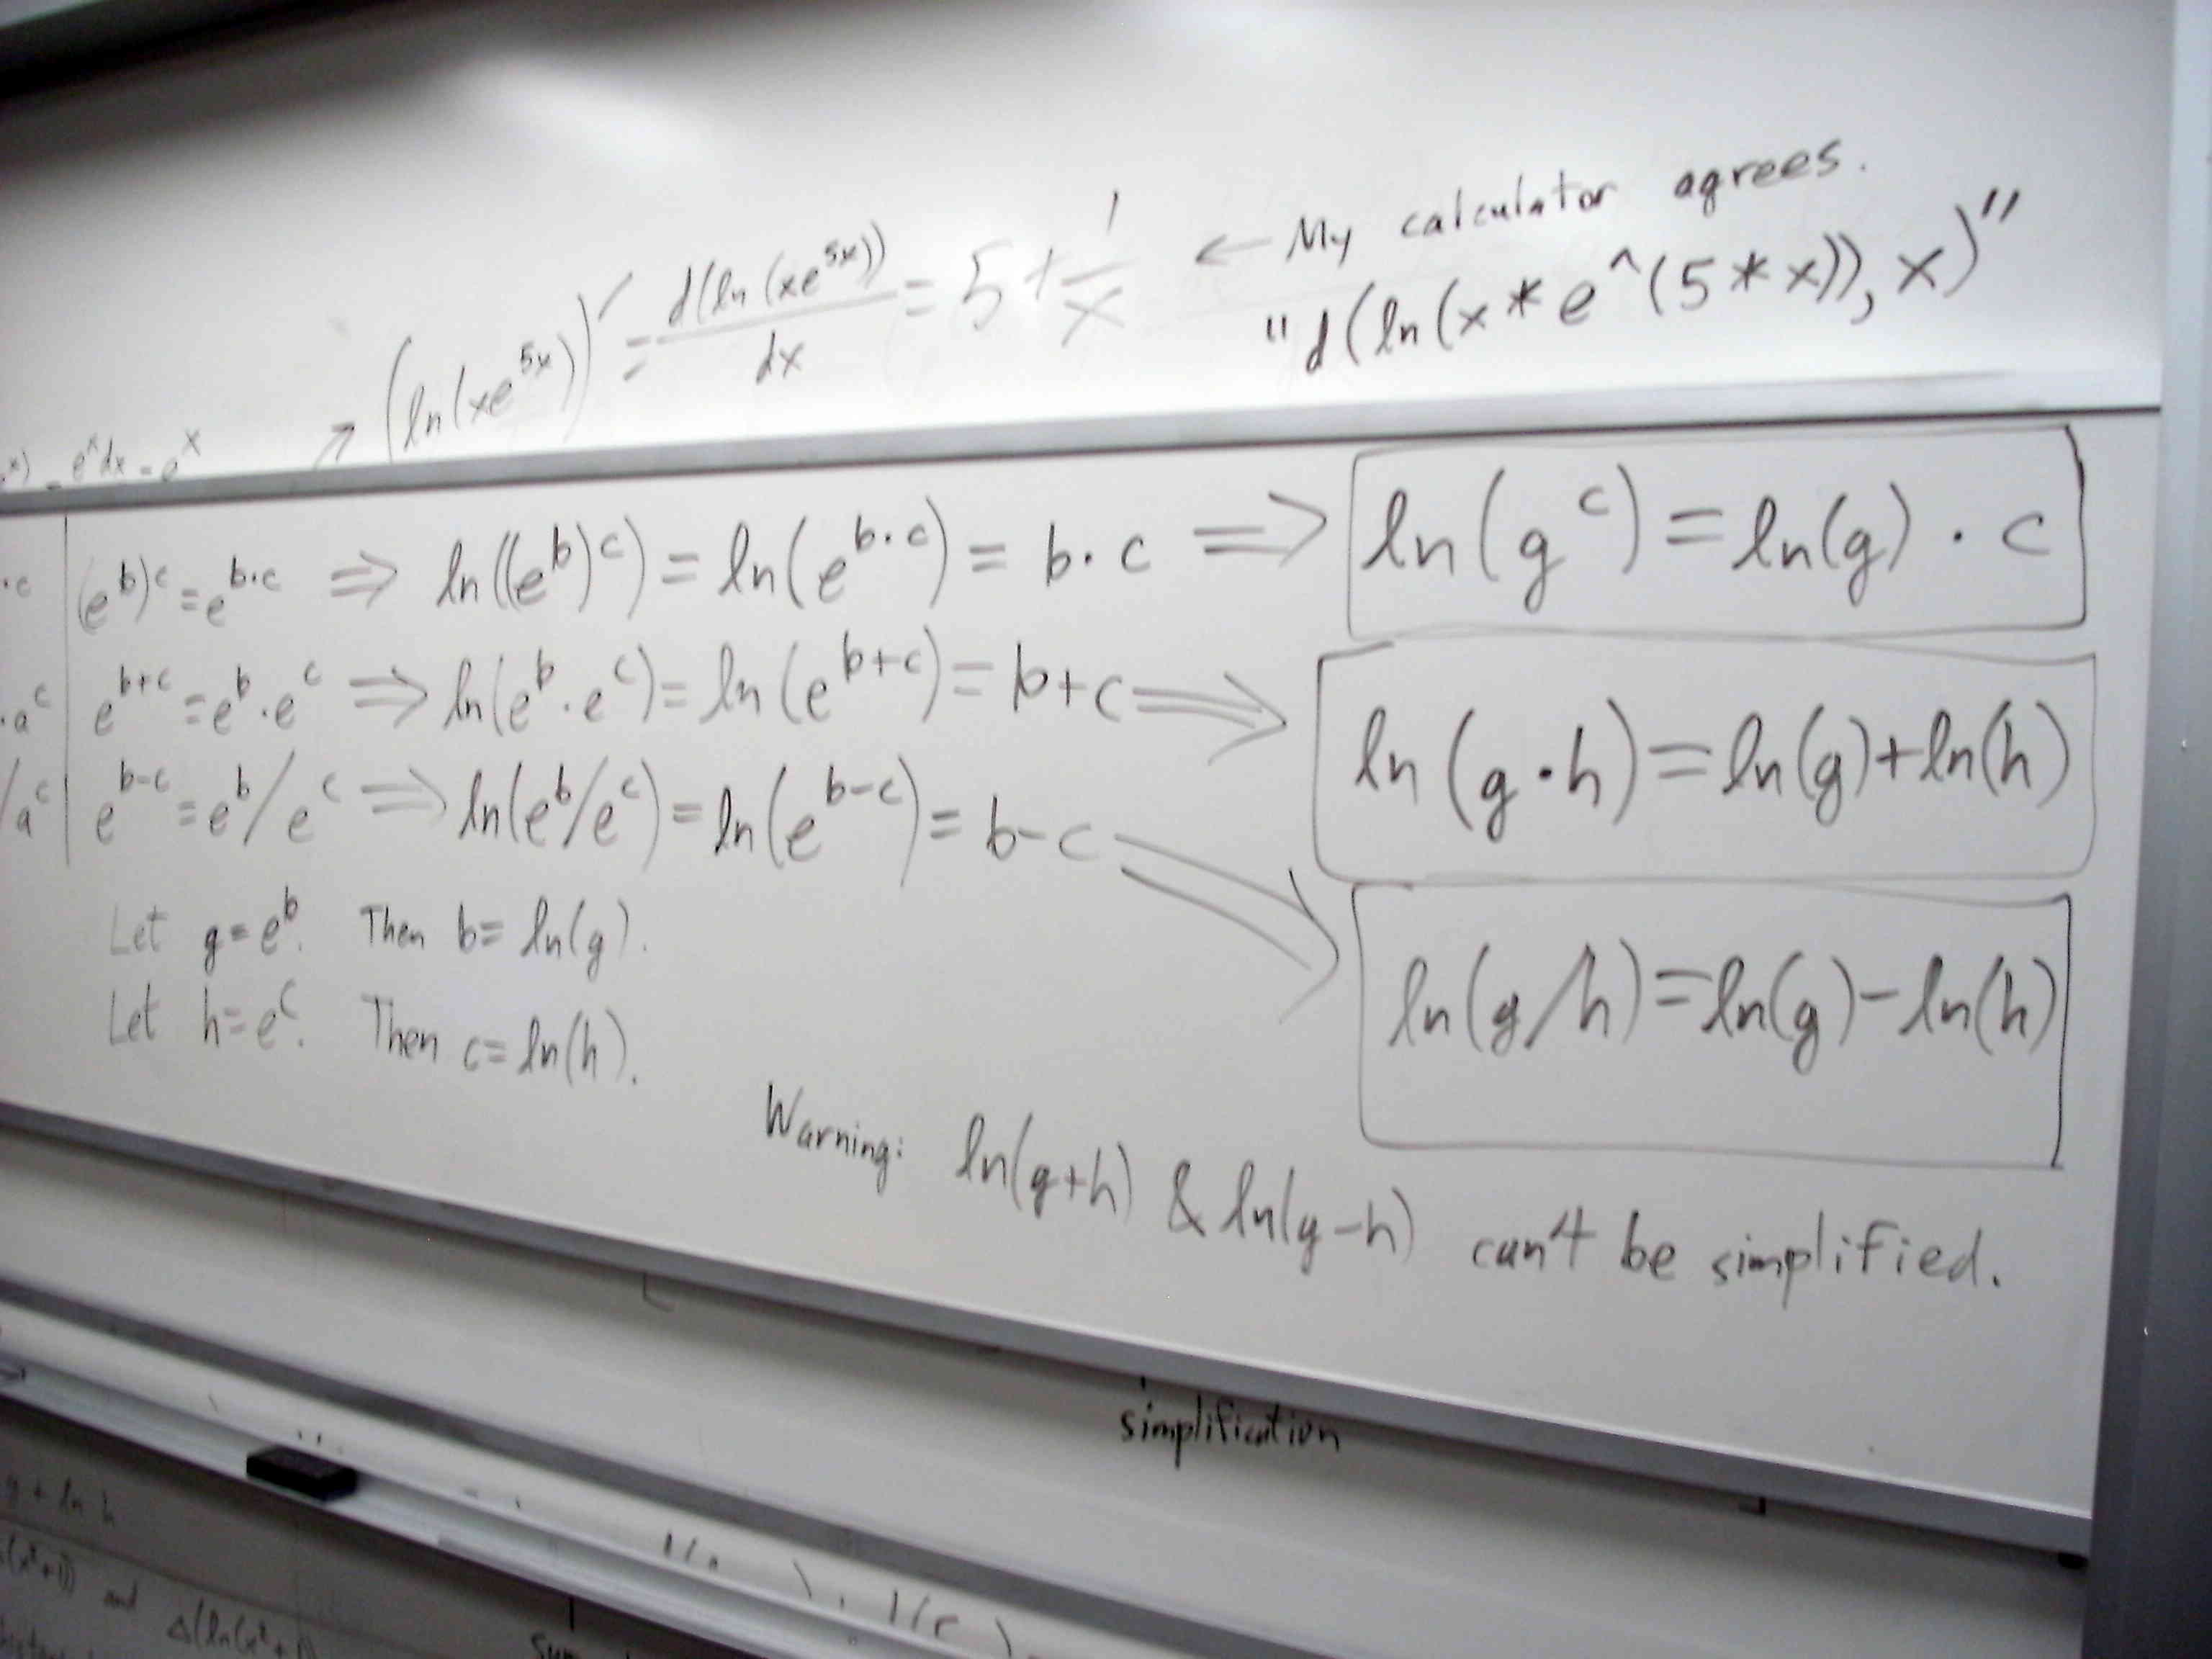 (ln(xe^{5x}))' = d(ln(xe^{5x}))/dx = 5 + 1/x ← My calculator agrees.
"d(ln(x*e^(5*x)),x)"
e^x dx = e^x
·c (e^b)^c = e^{b·c} ⇒ ln((e^b)^c) = ln(e^{b·c}) = b·c ⇒ ln(g^c) = ln(g)·c
·a^c e^{b+c} = e^b·e^c ⇒ ln(e^b·e^c) = ln(e^{b+c}) = b+c ⇒ ln(g·h) = ln(g)+ln(h)
/a^c e^{b-c} = e^b/e^c ⇒ ln(e^b/e^c) = ln(e^{b-c}) = b-c ⇒ ln(g/h) = ln(g)-ln(h)
Let g = e^b. Then b = ln(g).
Let h = e^c. Then c = ln(h).
Warning: ln(g+h) & ln(g-h) can't be simplified.
simplification
g + ln h
(x²+1)) and Δ(ln(x²+1)